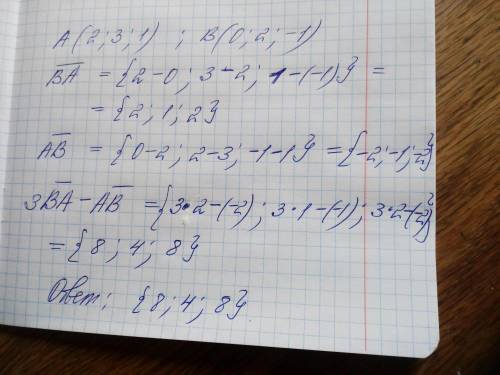 A(2; 3; 1) ; B(0; 2; -1)
BA = {2-0; 3-2; 1-(-1)} =
= {2; 1; 2}
AB = {0-2; 2-3; -1-1} = {-2; -1; -2}
3BA - AB = {3·2-(-2); 3·1-(-1); 3·2-(-2)}
= {8; 4; 8}
Ответ: {8; 4; 8}